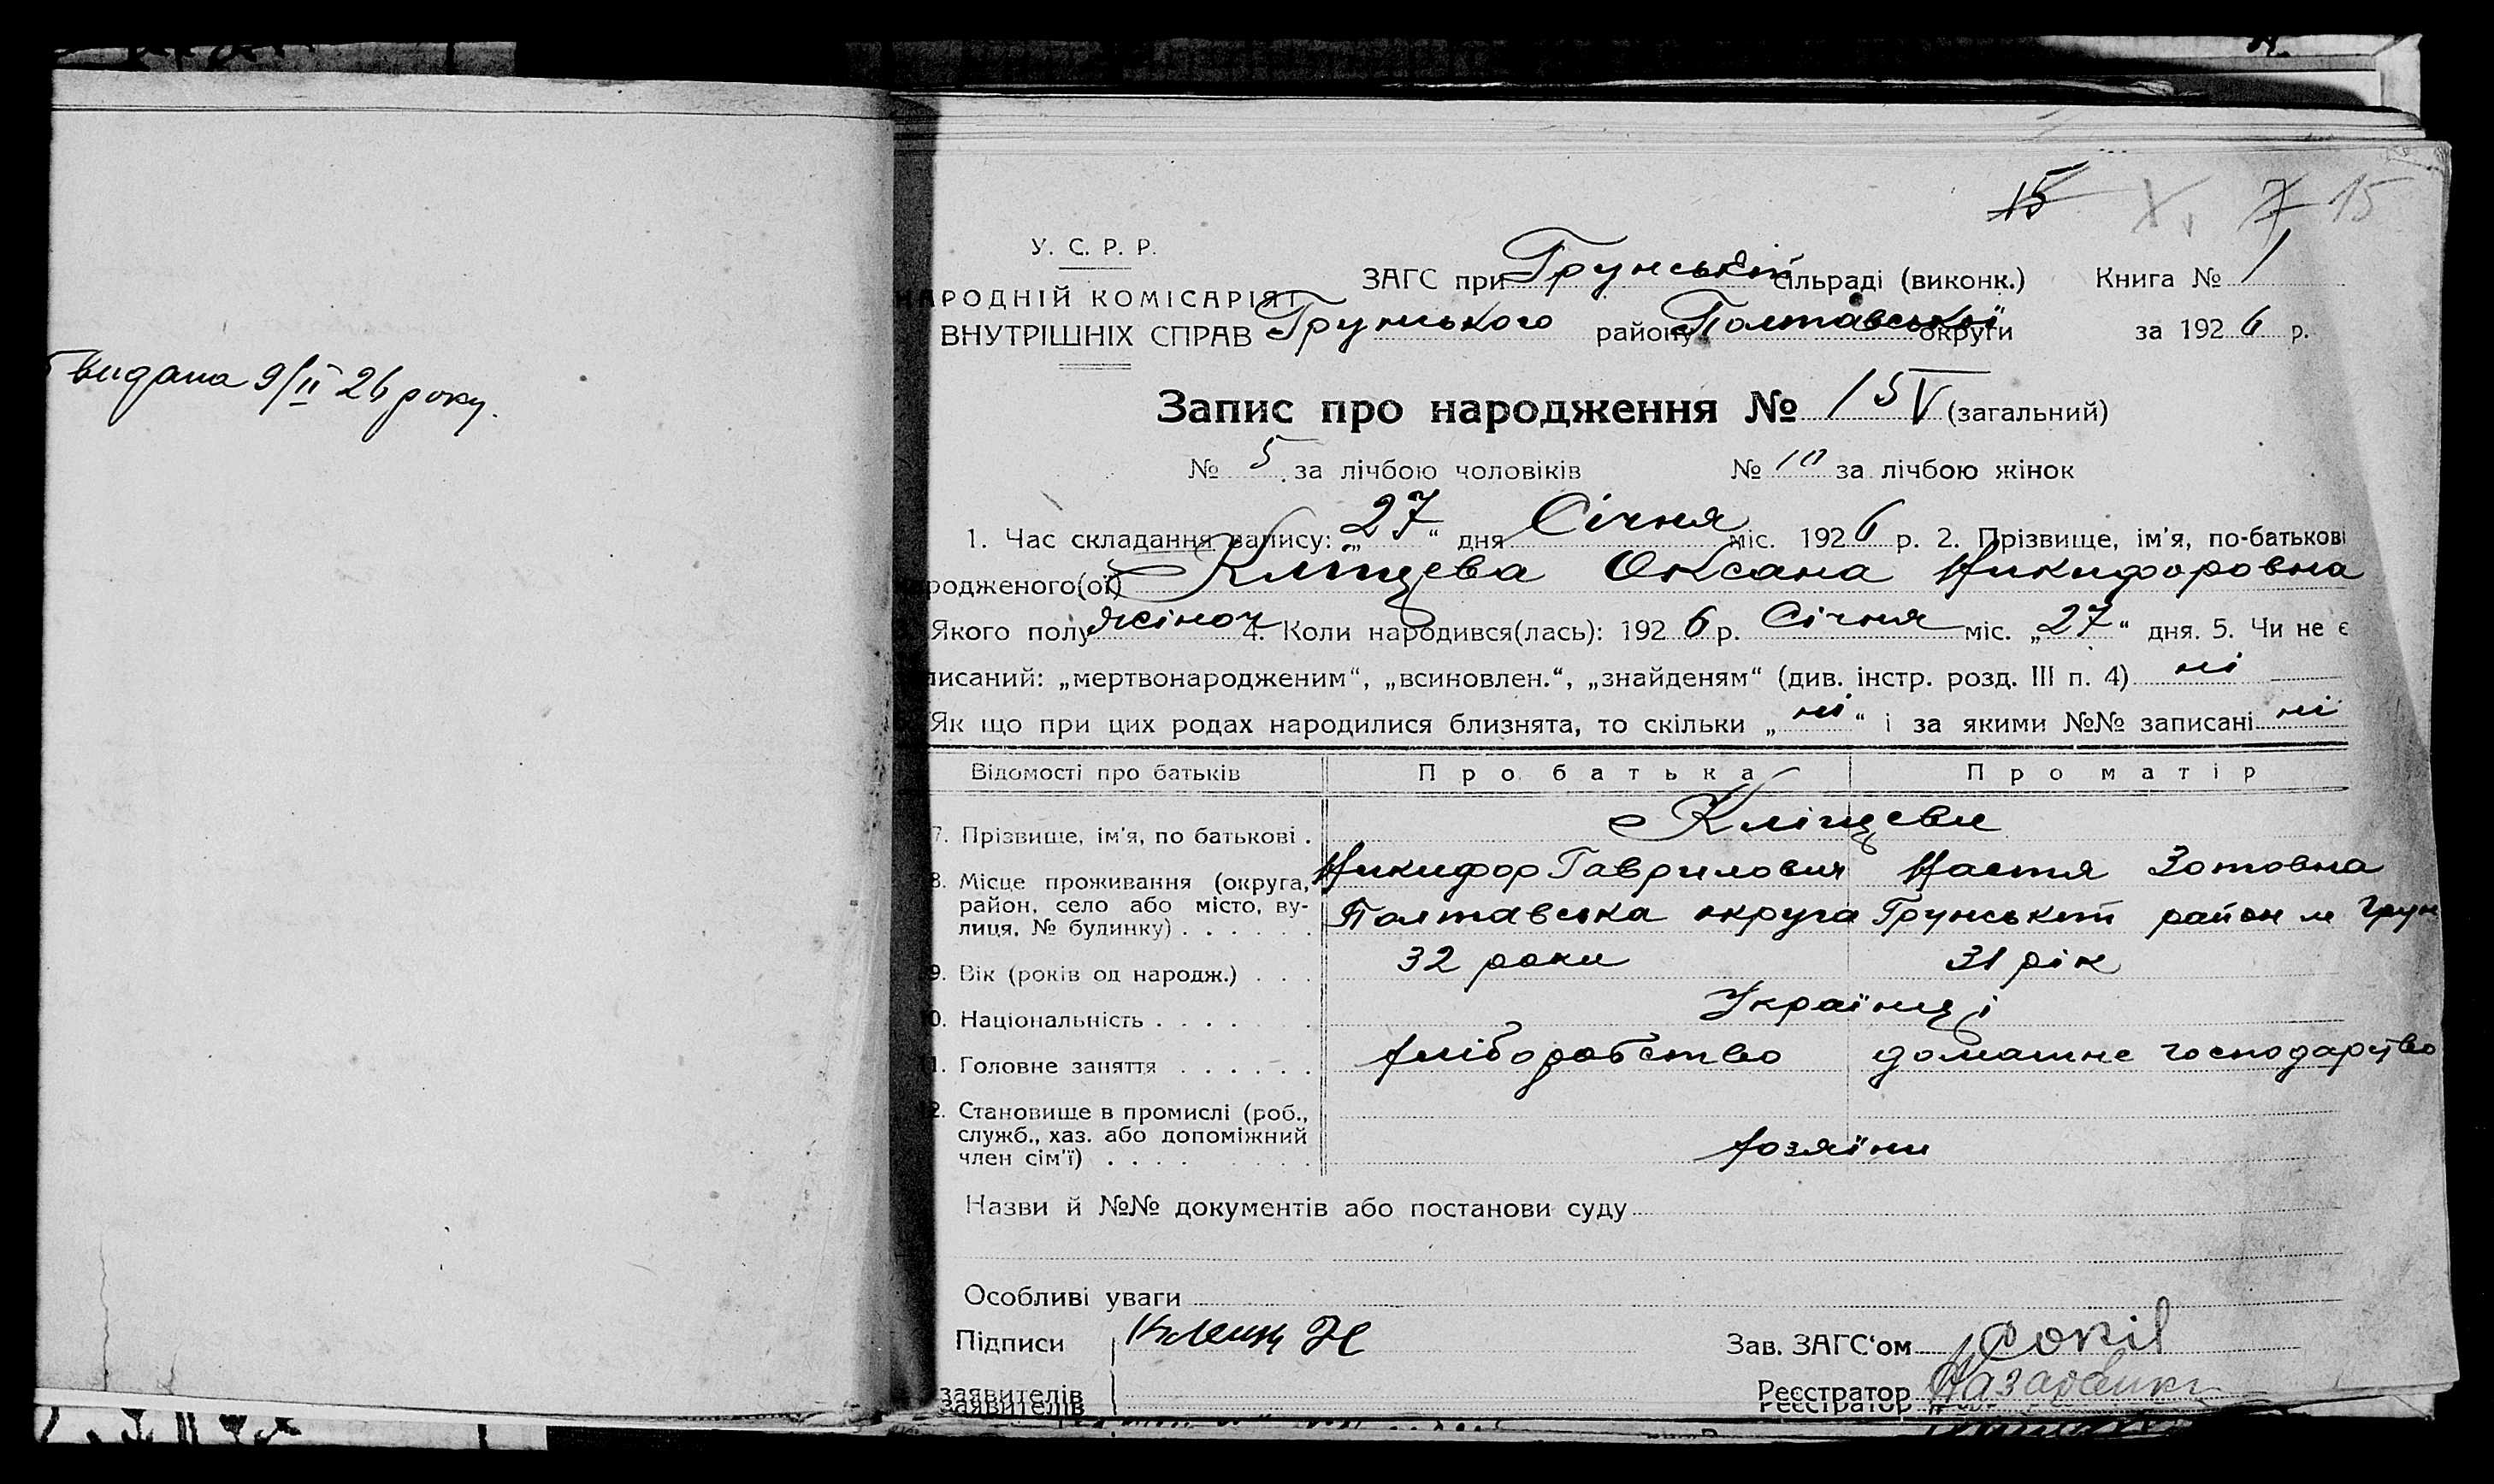 видана 9/II 26 року.
15 7 15
У. С. Р. Р.
ЗАГС при Грунській сільраді (виконк.) Книга № 1
НАРОДНІЙ КОМІСАРІЯТ
ВНУТРІШНІХ СПРАВ Грунського району Полтавської округи за 1926 р.
Запис про народження № 15 (загальний)
№ 5 за лічбою чоловіків № 10 за лічбою жінок
1. Час складання запису: „27“ дня Січня міс. 1926 р. 2. Прізвище, ім'я, по-батькові
родженого(ої) Кліщева Оксана Никифоровна
Якого полу жіноч 4. Коли народився(лась): 1926 р. Січня міс. „27“ дня. 5. Чи не є
писаний: „мертвонародженим“, „всиновлен.“, „знайденям“ (див. інстр. розд. III п. 4) ні
Як що при цих родах народилися близнята, то скільки „ні“ і за якими №№ записані ні
Відомості про батьків Про батька Про матір
7. Прізвище, ім'я, по батькові . Кліщеви
Никифор Гаврилович Настя Зотовна
8. Місце проживання (округа, район, село або місто, ву-
лиця, № будинку) . . . . . . Полтавська округа Грунський район м Грун
9. Вік (років од народж.) . . . 32 роки 31 рік
10. Національність . . . . . Українці
11. Головне заняття . . . . . . хліборобство домашнє господарство
12. Становище в промислі (роб.,
служб., хаз. або допоміжний
член сім'ї) . . . . . . . . хозяїни
Назви й №№ документів або постанови суду
Особливі уваги
Підписи Клищ Н Зав. ЗАГС'ом Сокіл
заявителів Реєстратор Назаренко